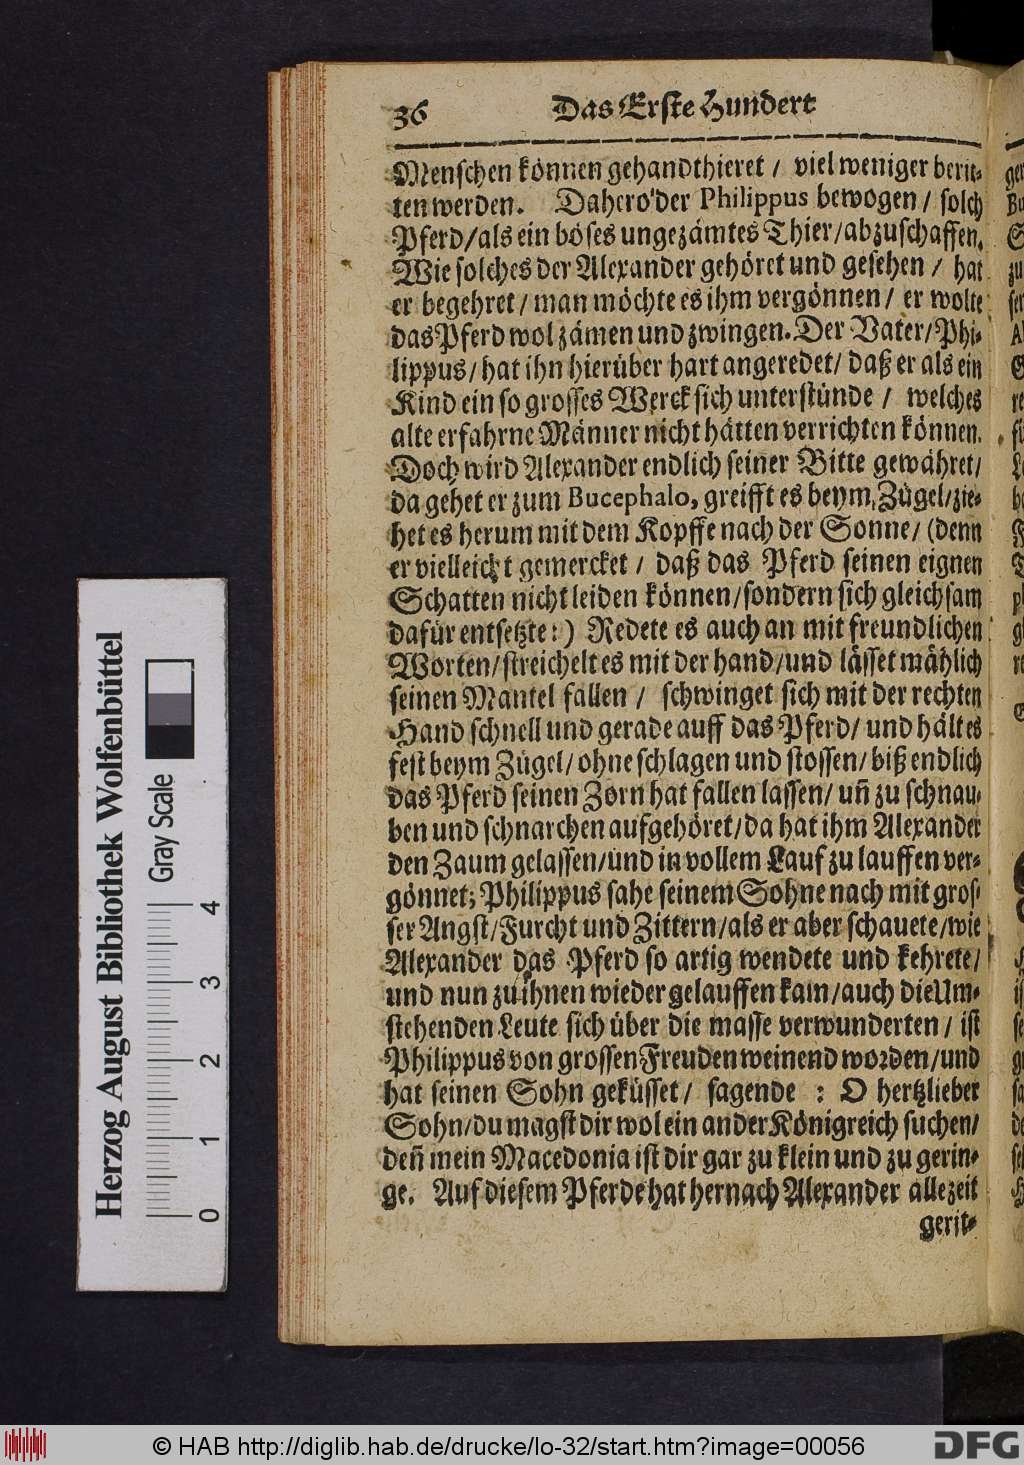 36 Das Erste Hundert
Menschen können gehandthieret / viel weniger berit-
ten werden. Dahero der Philippus bewogen / solch
Pferd / als ein böses ungezämtes Thier / abzuschaffen.
Wie solches der Alexander gehöret und gesehen / hat
er begehret / man möchte es ihm vergönnen / er wolte
das Pferd wol zämen und zwingen. Der Vater / Phi-
lippus / hat ihn hierüber hart angeredet / daß er als ein
Kind ein so grosses Werck sich unterstünde / welches
alte erfahrne Männer nicht hätten verrichten können.
Doch wird Alexander endlich seiner Bitte gewähret /
da gehet er zum Bucephalo, greifft es beym Zügel / zie-
het es herum mit dem Kopffe nach der Sonne / (denn
er vielleicht gemercket / daß das Pferd seinen eignen
Schatten nicht leiden können / sondern sich gleichsam
dafür entsetzte:) Redete es auch an mit freundlichen
Worten / streichelt es mit der hand / und lässet mählich
seinen Mantel fallen / schwinget sich mit der rechten
Hand schnell und gerade auff das Pferd / und hält es
fest beym Zügel / ohne schlagen und stossen / biß endlich
das Pferd seinen Zorn hat fallen lassen / uñ zu schnau-
ben und schnarchen aufgehöret / da hat ihm Alexander
den Zaum gelassen / und in vollem Lauf zu lauffen ver-
gönnet; Philippus sahe seinem Sohne nach mit gros-
ser Angst / Furcht und Zittern / als er aber schauete / wie
Alexander das Pferd so artig wendete und kehrete /
und nun zu ihnen wieder gelauffen kam / auch die Um-
stehenden Leute sich über die masse verwunderten / ist
Philippus von grossen Freuden weinend worden / und
hat seinen Sohn geküsset / sagende : O hertzlieber
Sohn / du magst dir wol ein ander Königreich suchen /
deñ mein Macedonia ist dir gar zu klein und zu gerin-
ge. Auf diesem Pferde hat hernach Alexander allezeit
gerit-
Herzog August Bibliothek Wolfenbüttel
Gray Scale
0 1 2 3 4
© HAB http://diglib.hab.de/drucke/lo-32/start.htm?image=00056
DFG